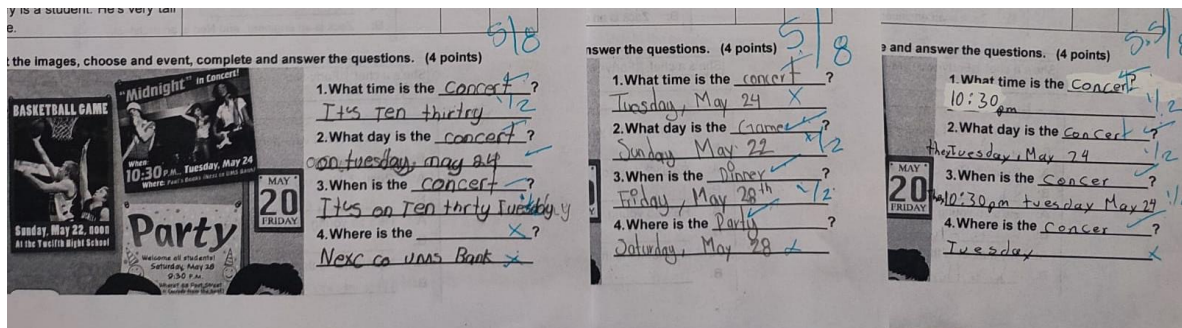 y is a student. He's very tall
e.
5/8
t the images, choose and event, complete and answer the questions. (4 points)
BASKETBALL GAME
Sunday, May 22, noon
At the Twelfth Night School
"Midnight" in Concert!
When:
10:30 P.M. Tuesday, May 24
Where:
Party
Welcome all students!
Saturday, May 28
9:30 P.M.
MAY
20
FRIDAY
1.What time is the concert ?
It's Ten thirtry
1/2
2.What day is the concert ?
on tuesday, may 24
3.When is the concert ?
It's on Ten thrty Tuesday
4.Where is the x ?
Nexc co UMS Bank x
nswer the questions. (4 points)
5/8
1.What time is the concert ?
Tursday, May 24 x
2.What day is the Game ?
Sunday May 22 1/2
3.When is the Dinner ?
Friday, May 28th 1/2
4.Where is the Party ?
Saturday, May 28 x
e and answer the questions. (4 points)
5.5/8
MAY
20
FRIDAY
1.What time is the Concert ?
10:30 pm
1/2
2.What day is the Concert ?
the Tuesday, May 24
1/2
3.When is the Concer ?
10:30pm tuesday May 24
4.Where is the Concer ?
Tuesday x